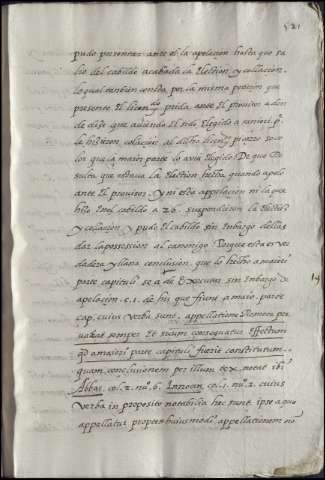 521
pudo presentar ante el la apelacion hasta que sa
lio del cabildo acabada la election, y collacion.
lo qual tambien consta por la misma peticion que
presento el licen.do ante el provisor adon
de dize que aviendo el sido elegido a maiori p.te
le hizieron colacion al dicho licen.do pizaro so co
lor que la maior parte lo avia elegido. De que Re
sulta que estava la election hecha quando apelo
ante el provisor. y ni esta appelacion ni la que
hizo en el cabildo a 26. suspendieron la election
y collacion. y pudo el cabildo sin embargo dellas
dar la possession al canonigo. Porque esta es ver
dadera y llana conclusion, que lo hecho a maiori
parte capituli se a de executar sin embargo de
apelacion. c. 1. de his que fiunt a maio. parte
cap. cuius verba sunt. appellatione Remota per
valeat semper et suum consequatur effectum
qd a maiori parte capituli fuerit constitutum.
quam conclusionem per illum tex. notat ibi
Abbas. col. 2. nu.o 6. Innocen. col. 1. nu.o 2. cuius
verba in proposito notabilia hec sunt. ipse a quo
appellatur propter huiusmodi appellationem no